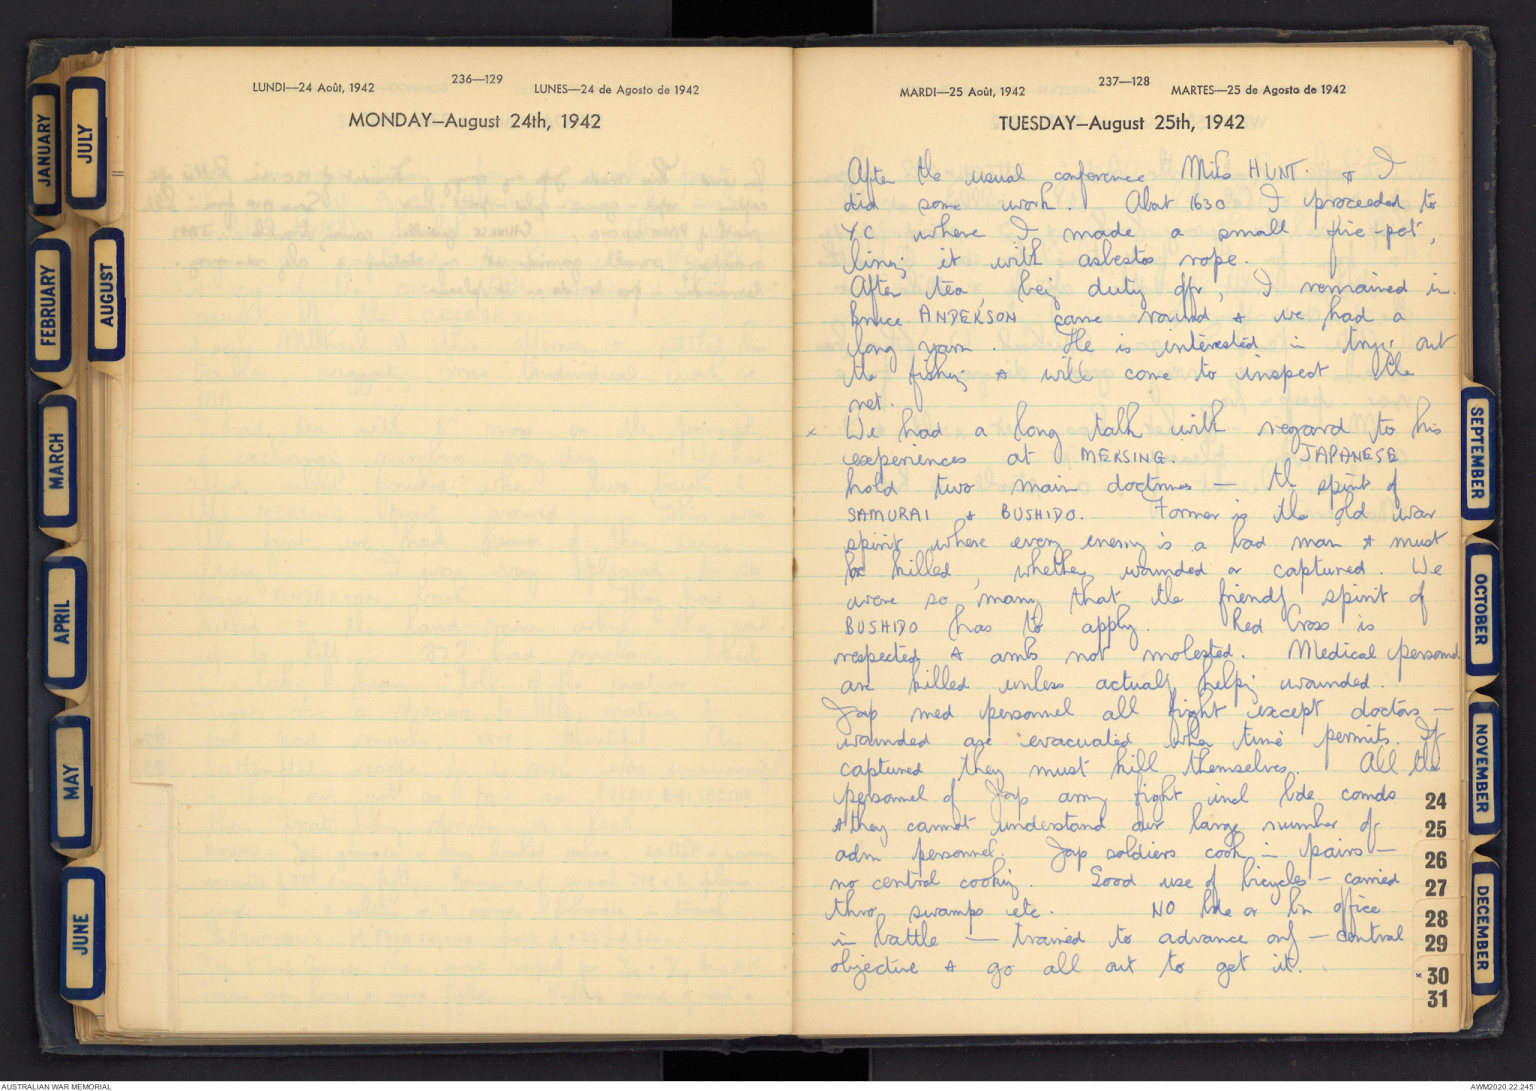 LUNDI—24 Août, 1942
236—129
LUNES—24 de Agosto de 1942
MONDAY—August 24th, 1942
JANUARY
JULY
FEBRUARY
AUGUST
MARCH
APRIL
MAY
JUNE
MARDI—25 Août, 1942
237—128
MARTES—25 de Agosto de 1942
TUESDAY—August 25th, 1942
After the usual conference Mike HUNT & I
did some work. About 1630 I proceeded to
YC where I made a small fire-pot,
lining it with asbestos rope.
After tea, being duty offr, I remained in.
Bruce ANDERSON came round & we had a
long yarn. He is interested in tryg out
the fishing & will come to inspect the
net.
x We had a long talk with regard to his
experiences at MERSING. JAPANESE
hold two main doctrines — the spirit of
SAMURAI & BUSHIDO. Former is the old war
spirit where every enemy is a bad man & must
be killed, whether wounded or captured. We
were so many that the friendly spirit of
BUSHIDO has to apply. Red Cross is
respected & ambs not molested. Medical personnel
are killed unless actually helpg wounded.
Jap med personnel all fight except doctors —
wounded are evacuated when time permits. If
captured they must kill themselves. All the
personnel of Jap army fight incl bde comds
& they cannot understand our large number of
adm personnel. Jap soldiers cook in pairs —
no central cooking. Good use of bicycles — carried
thro swamps etc. NO bde or bn office
in battle — trained to advance only — central
objective & go all out to get it.
24
25
26
27
28
29
30
31
SEPTEMBER
OCTOBER
NOVEMBER
DECEMBER
AUSTRALIAN WAR MEMORIAL
AWM2020.22.245